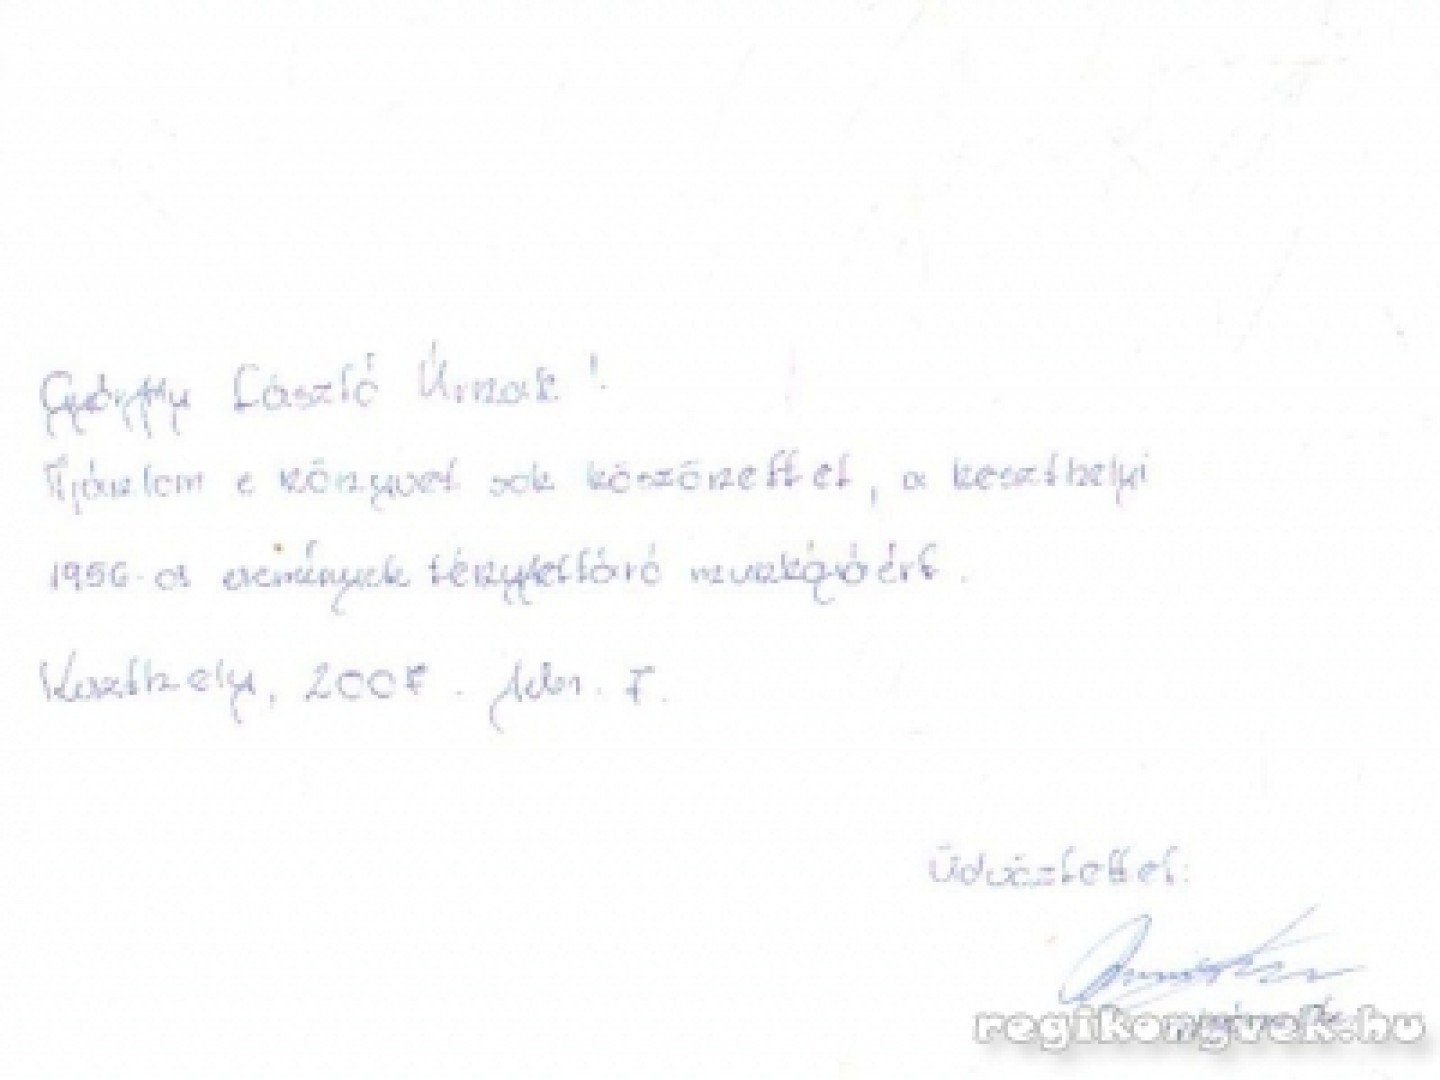 Györffy László Úrnak!
Ajánlom e könyvet sok köszönettel, a keszthelyi
1956-os események tényfeltáró munkájáért.
Keszthely, 2007. febr. 7.
Üdvözlettel:
regikonyvek.hu